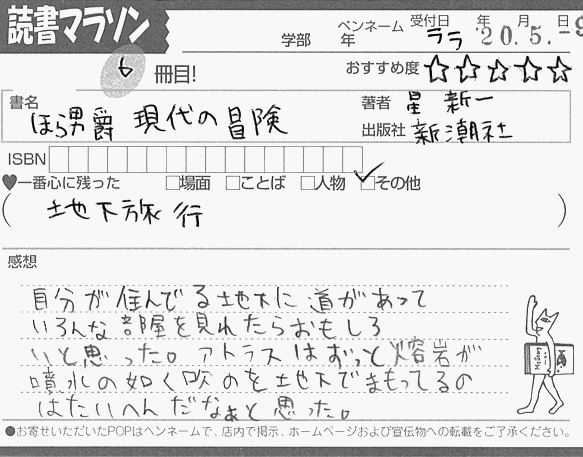 読書マラソン
学部 年 ペンネーム ララ 受付日 '20.5.-9 年 月 日
6 冊目! おすすめ度 ☆☆☆☆☆
書名 ほら男爵 現代の冒険 著者 星 新一
出版社 新潮社
ISBN
♥一番心に残った □場面 □ことば □人物 ☑その他
( 地下旅行 )
感想
自分が住んでる地下に道があって
いろんな部屋を見れたらおもしろ
いと思った。アトラスはずっと熔岩が
噴水の如く吹のを地下でまもってるの
はたいへんだなぁと思った。
●お寄せいただいたPOPはペンネームで、店内で掲示、ホームページおよび宣伝物への転載をご了承ください。